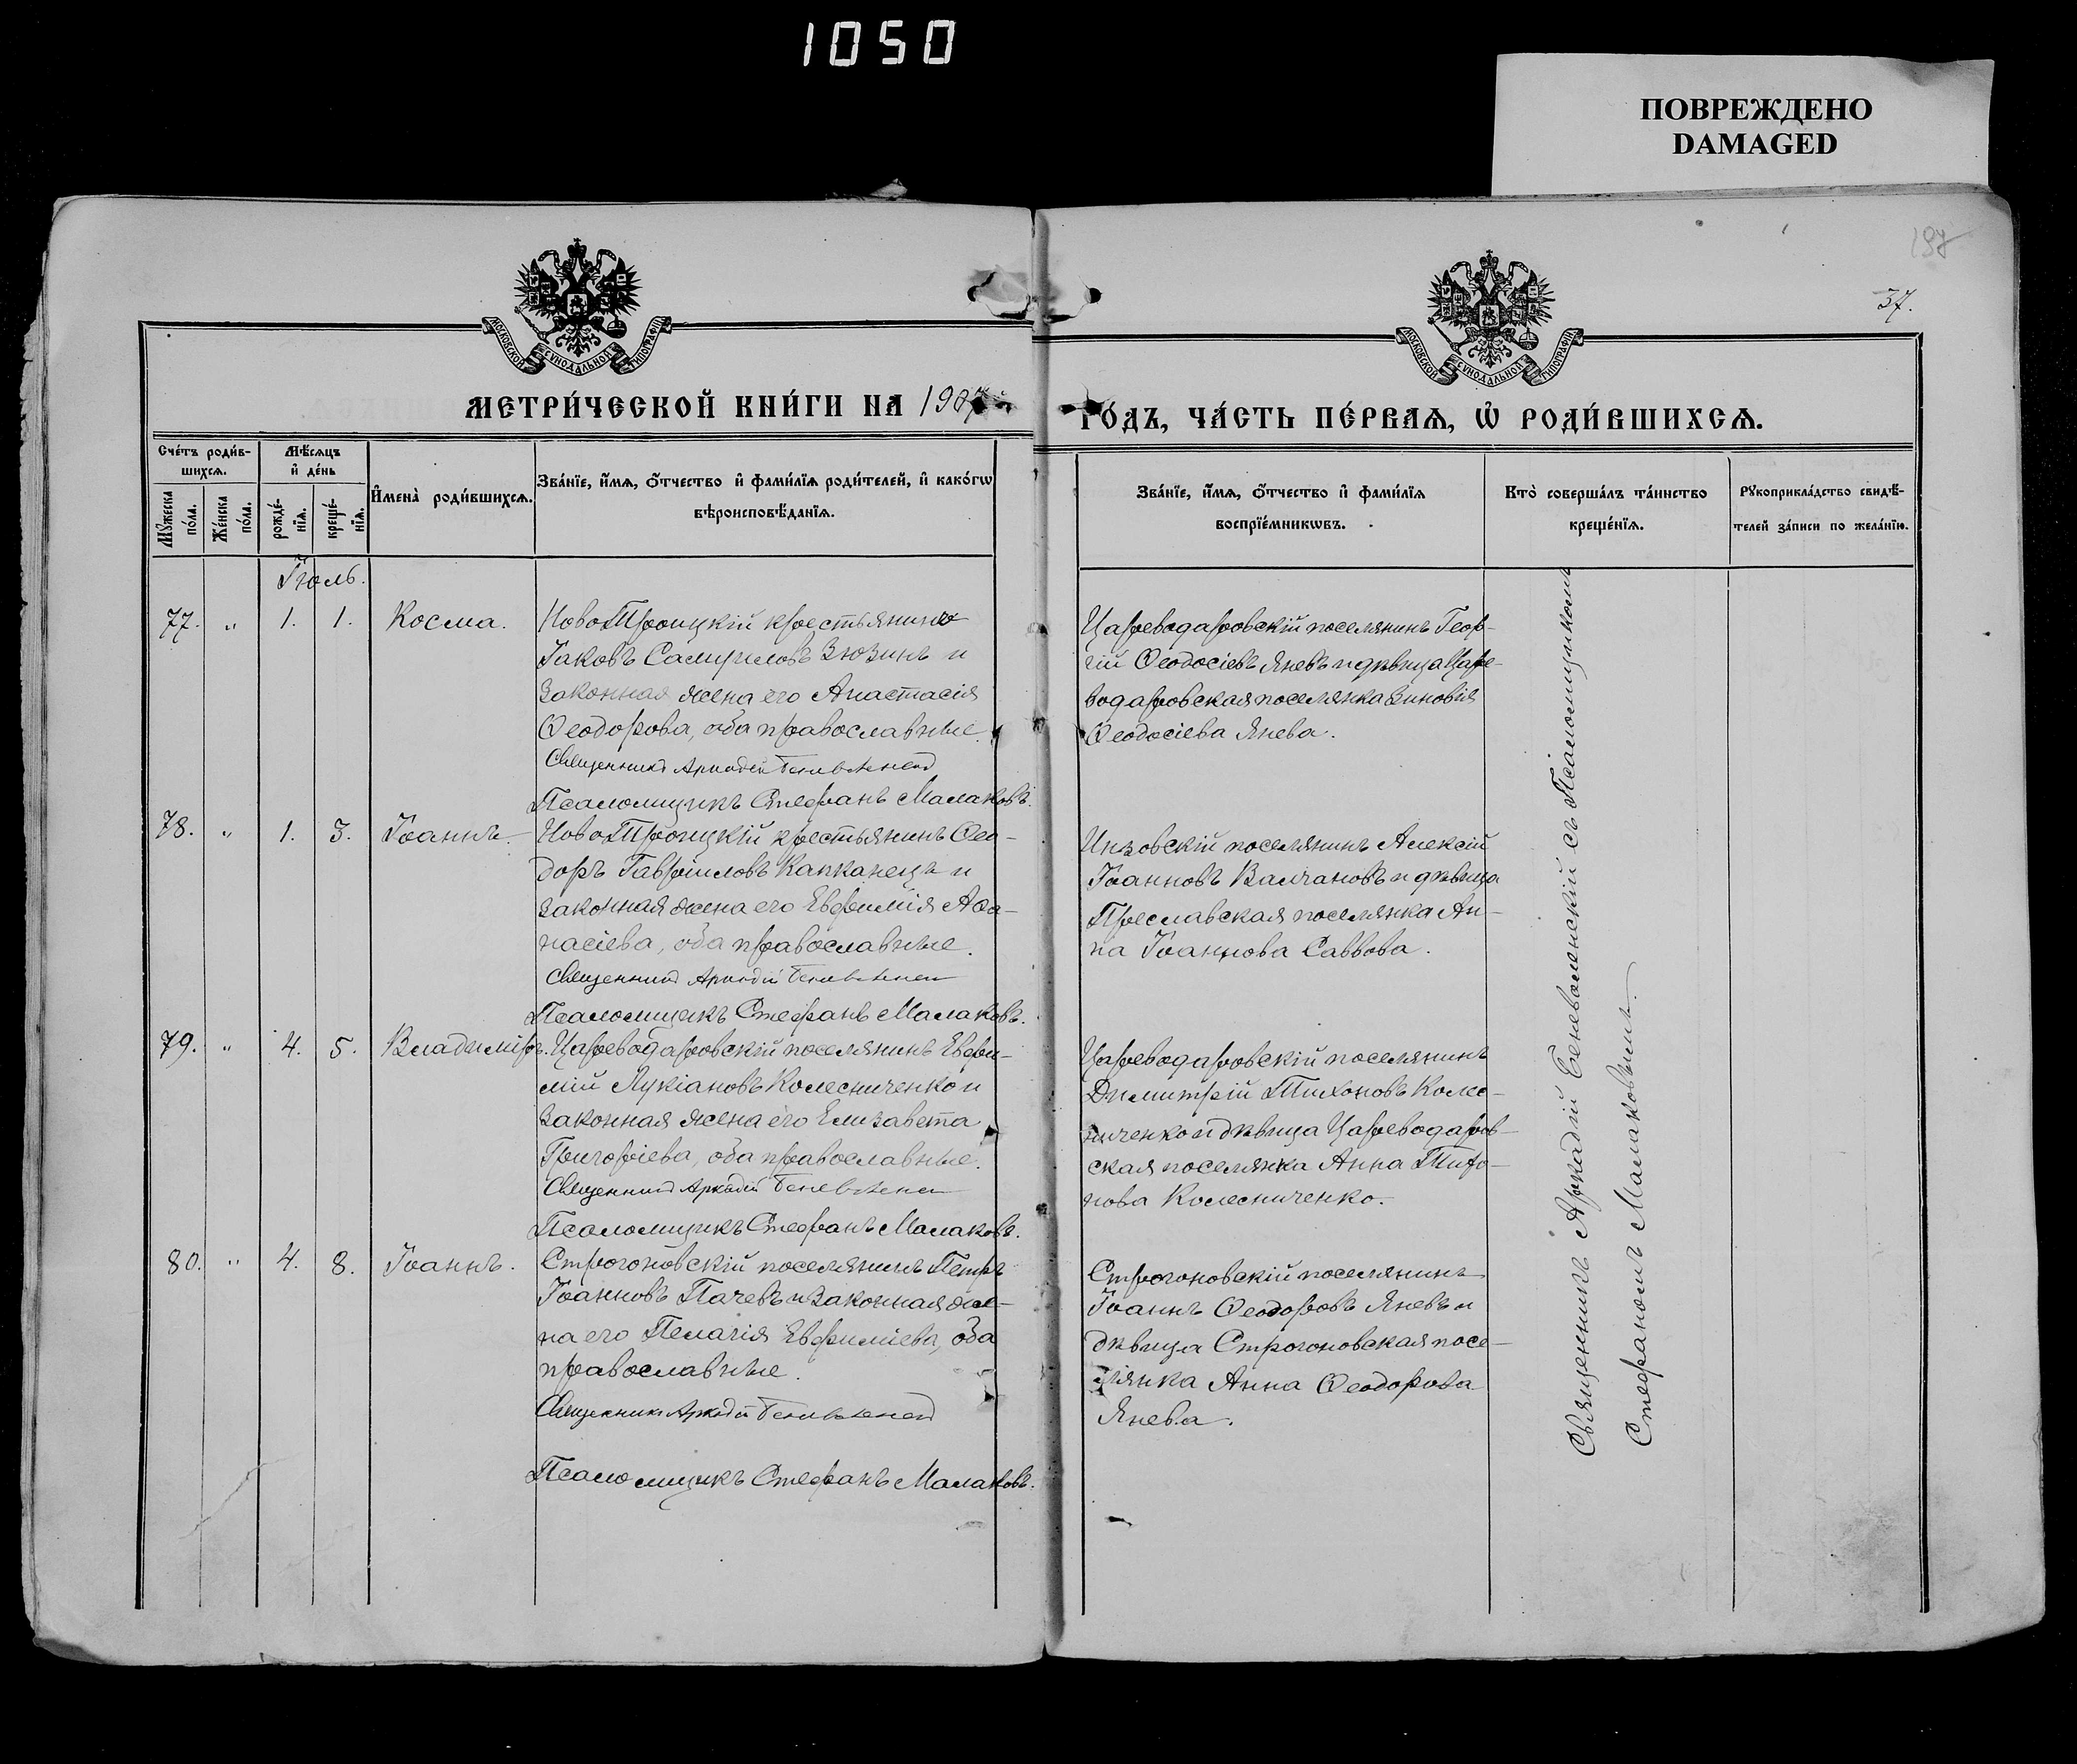 1050
ПОВРЕЖДЕНО
DAMAGED
37.
МОСКОВСКОЙ СѴНОДАЛЬНОЙ ТИПОГРАФІИ
МОСКОВСКОЙ СѴНОДАЛЬНОЙ ТИПОГРАФІИ
МЕТРИ́ЧЕСКОЙ КНИ́ГИ НА 1907
ГО́ДЪ, ЧА́СТЬ ПЕ́РВАѦ, Ѡ҆ РОДИ́ВШИХСѦ.
Сче́тъ роди́в-
шихсѧ.
Мѣ́сѧцъ
и҆ де́нь
Мꙋ́жеска
по́ла.
Же́нска
по́ла.
рожде́-
нїѧ.
креще́-
нїѧ.
И҆мена̀ роди́вшихсѧ.
Зва́нїе, и҆́мѧ, ѻ҆́тчество и҆ фами́лїѧ роди́телей, и҆ како́гѡ
вѣроисповѣ́данїѧ.
Зва́нїе, и҆́мѧ, ѻ҆́тчество и҆ фами́лїѧ
воспрїе́мникѡвъ.
Кто̀ соверша́лъ та́инство
креще́нїѧ.
Рꙋкоприкла́дство свидѣ́-
телей за́писи по жела́нїю.
Іюль.
77. „ 1. 1. Косма. Ново Троицкій крестьянинъ
Іаковъ Самуиловъ Зюзинъ и
законная жена его Анастасія
Ѳеодорова, оба православные.
Священникъ Аркадій Беневоленскій
Псаломщикъ Стефанъ Малаковъ.
Цареводаровскій поселянинъ Геор-
гій Ѳеодосіевъ Яневъ и дѣвица Царе-
водаровская поселянка Зиновія
Ѳеодосіева Янева.
78. „ 1. 3. Іоаннъ. Ново Троицкій крестьянинъ Ѳео-
доръ Гавріиловъ Капканецъ и
законная жена его Евфимія Аѳа-
насіева, оба православные.
Священникъ Аркадій Беневоленскій
Псаломщикъ Стефанъ Малаковъ.
Инзовскій поселянинъ Алексій
Іоанновъ Валчановъ и дѣвица
Преславская поселянка Ан-
на Іоаннова Саввова.
79. „ 4. 5. Владиміръ. Цареводаровскій поселянинъ Евфи-
мій Лукіановъ Колесниченко и
законная жена его Елизавета
Григоріева, оба православные.
Священникъ Аркадій Беневоленскій
Псаломщикъ Стефанъ Малаковъ.
Цареводаровскій поселянинъ
Димитрій Тихоновъ Колес-
ниченко и дѣвица Цареводаров-
ская поселянка Анна Тихо-
нова Колесниченко.
80. „ 4. 8. Іоаннъ. Строгоновскій поселянинъ Петръ
Іоанновъ Пачевъ и законная же-
на его Пелагія Евфиміева, оба
православные.
Священникъ Аркадій Беневоленскій
Псаломщикъ Стефанъ Малаковъ.
Строгоновскій поселянинъ
Іоаннъ Ѳеодоровъ Яневъ и
дѣвица Строгоновская посе-
лянка Анна Ѳеодорова
Янева.
Священникъ Аркадій Беневоленскій съ Псаломщикомъ
Стефаномъ Малаковымъ.